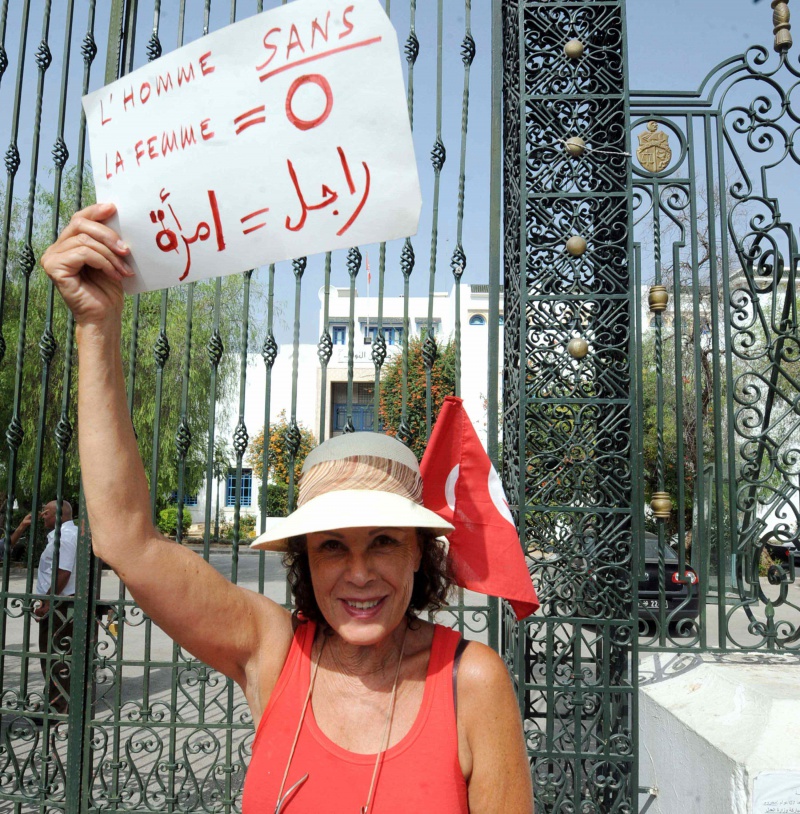 L'HOMME SANS
LA FEMME = O
راجل = امرأة